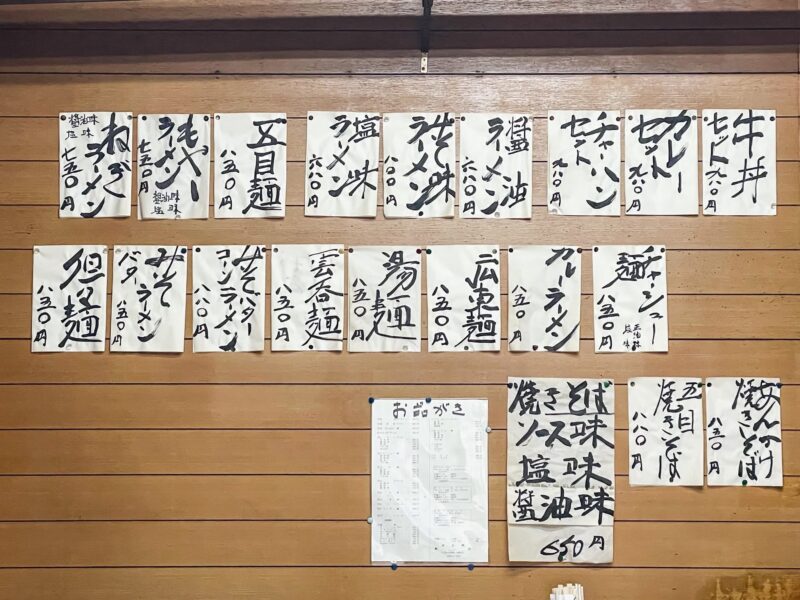 牛丼
セット九八〇円
カレー
セット
九八〇円
チャーハン
セット
九八〇円
醤油
ラーメン
六八〇円
みそ味
ラーメン
八〇〇円
塩味
ラーメン
六八〇円
五目麺
八五〇円
もやし
ラーメン
七五〇円
醤油味
塩味
醤油味
塩味
ねぎ
ラーメン
七五〇円
チャーシュー
麺
八五〇円
正油味
塩味
カレーラーメン
八五〇円
広東麺
八五〇円
湯麺
八五〇円
雲呑麺
八五〇円
みそバター
コーンラーメン
八八〇円
みそ
バターラーメン
八五〇円
担々麺
八五〇円
あんかけ
焼きそば
八五〇円
五目
焼きそば
八八〇円
焼きそば
ソース味
塩味
醤油味
650円
お品がき